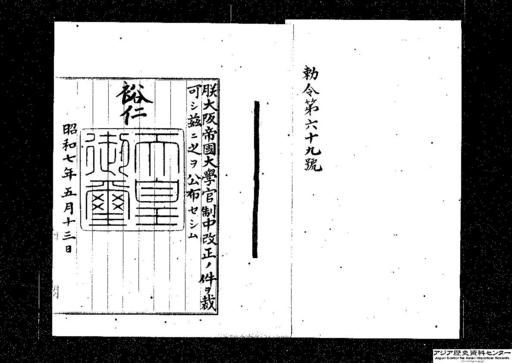 勅令第六十九號
朕大阪帝國大學官制中改正ノ件ヲ裁
可シ茲ニ之ヲ公布セシム
裕仁
天皇
御璽
昭和七年五月十三日
アジア歴史資料センター
Japan Center for Asian Historical Records